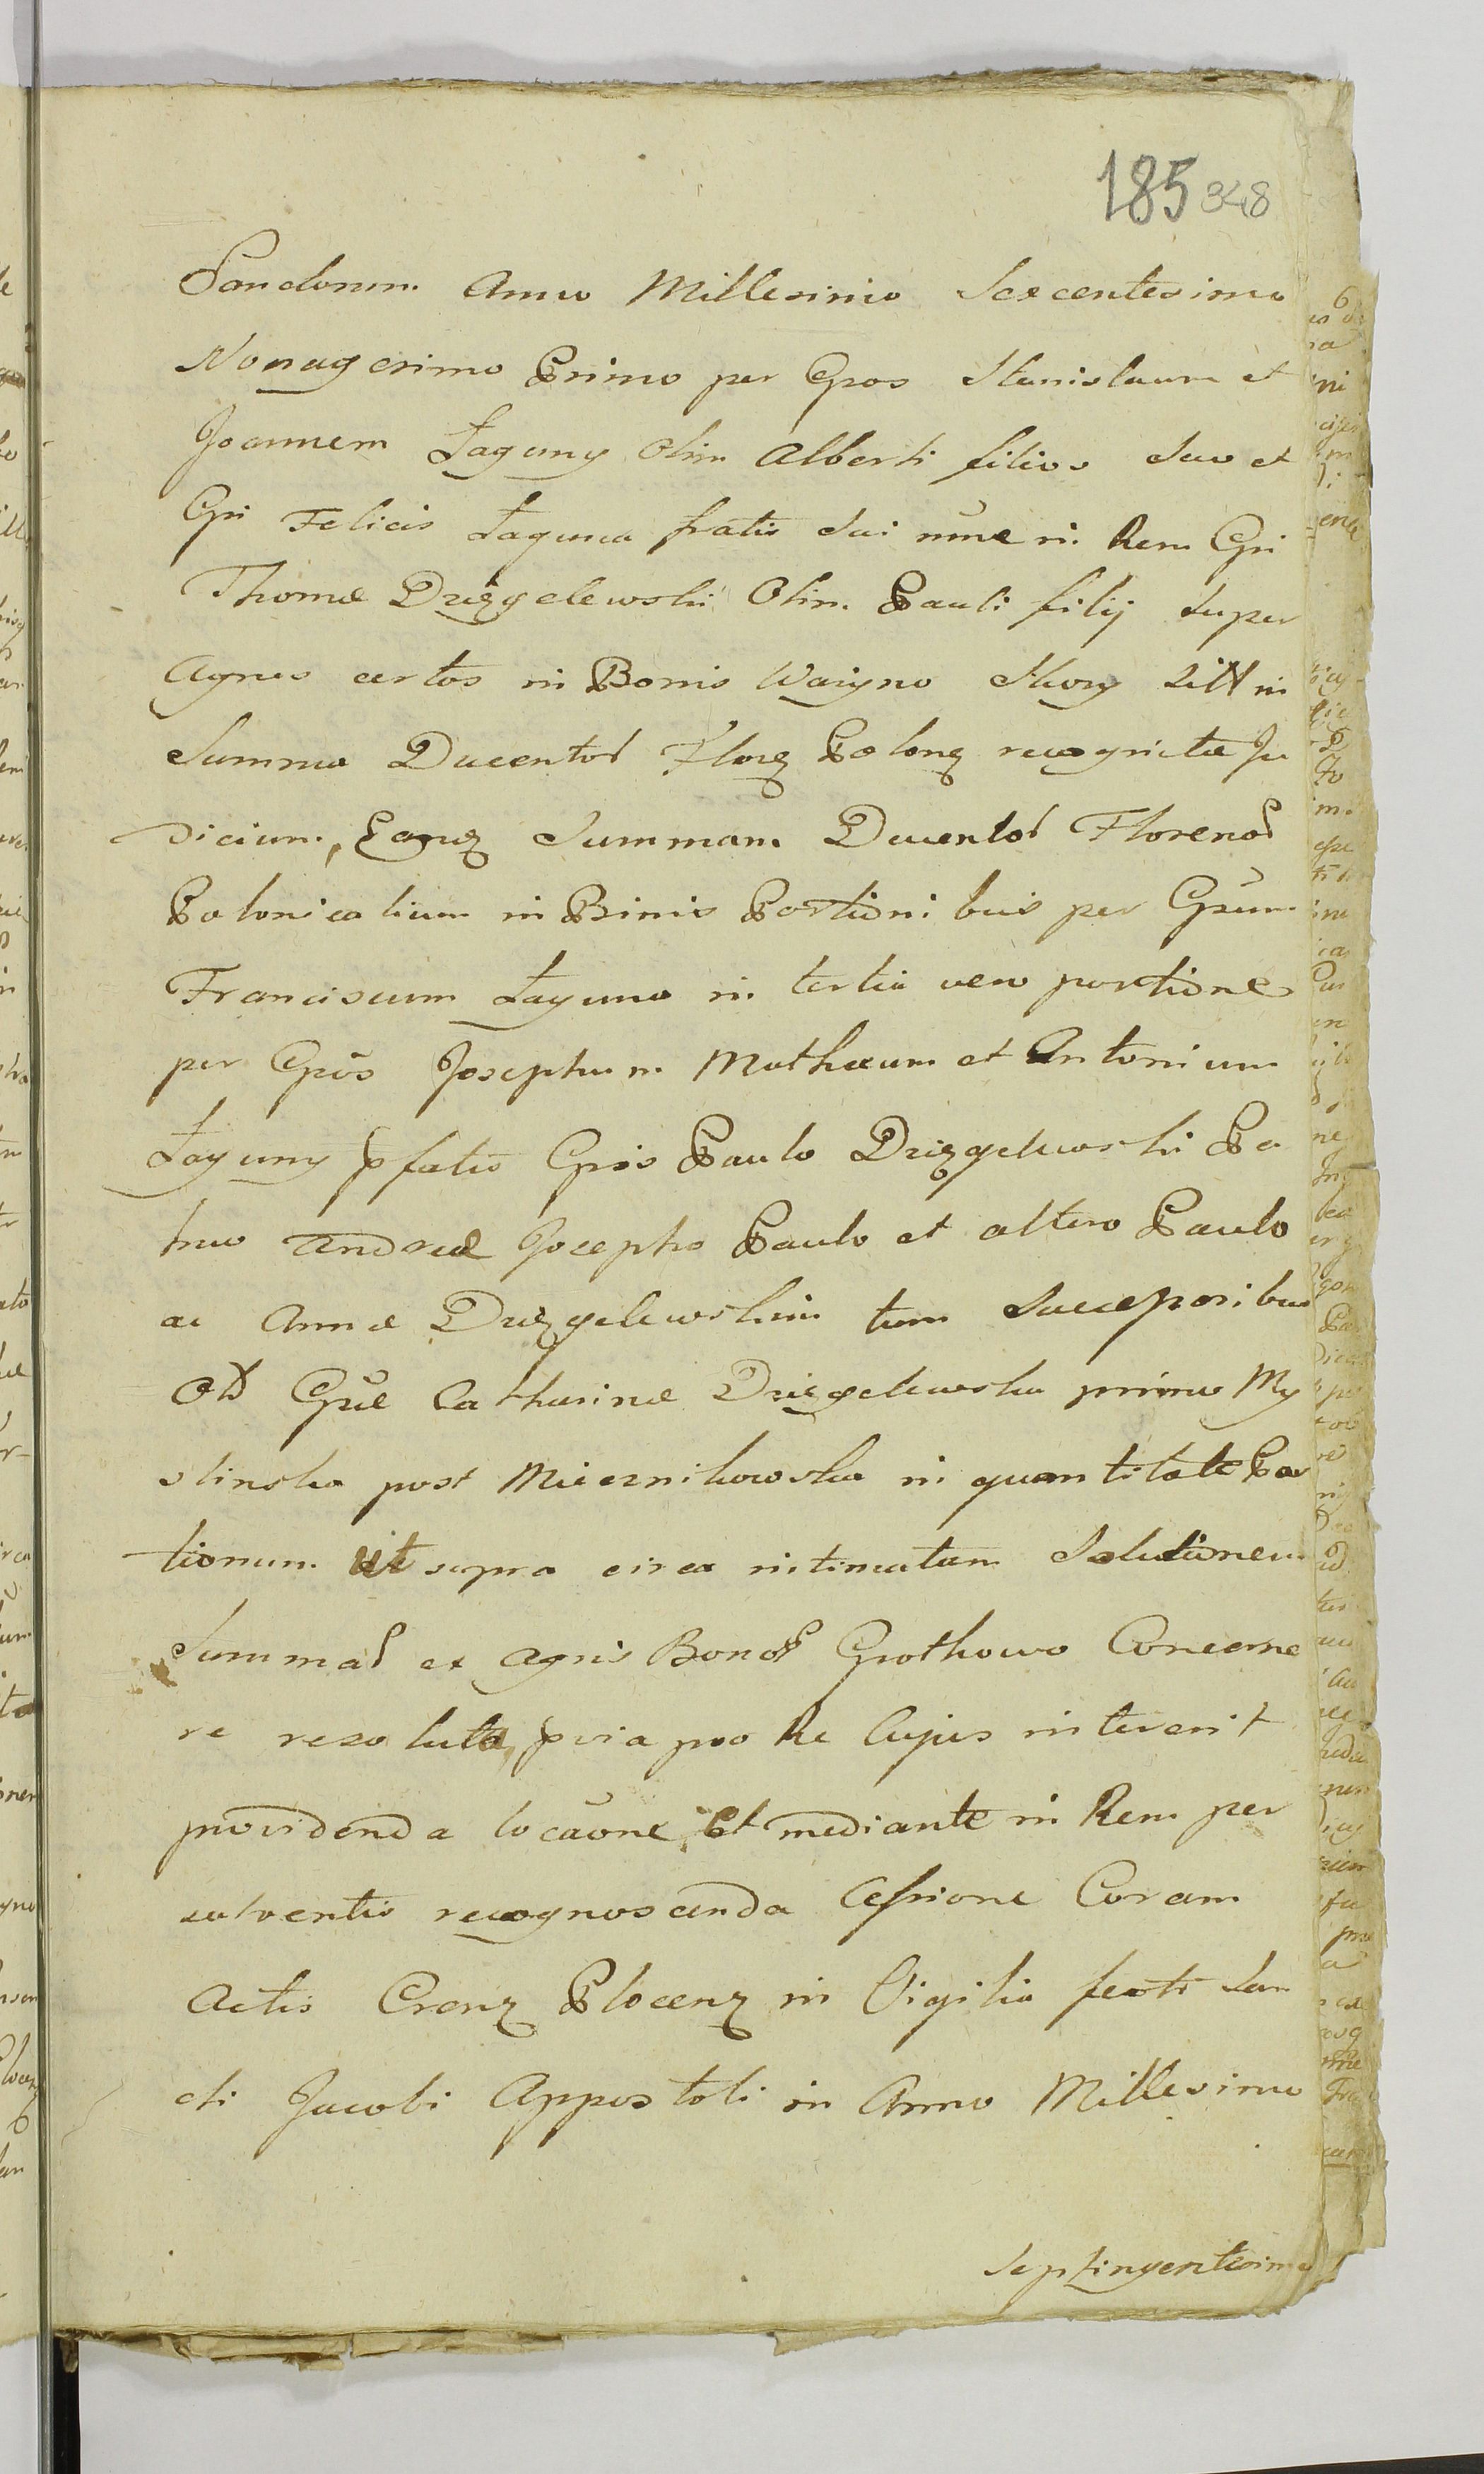 185 348
Sanctorum Anno Millesimo Sexcentesimo
Nonagesimo Primo per Gnos Stanislaum et
Joannem Łaguny Olim Alberti filios Suo et
Gni Felicis Łaguna fratis Sui nõie in Rem Gni
Thomæ Dzięgelewski Olim Pauli filij super
Agros certos in Bonis Woźyno sitt in
Summa Ducentor Flor Polon recognitæ Ju
dicium, Eamq Summam Ducentor Florenor
Polonicalium in Binis Portionibus per Gnũm
Franciscum Łaguna in tertia vero portione
per Gnõs Josephum Mathæum et Antonium
Łaguny pfatis Gnis Paulo Dzięgelewski Pa
truo Andreæ Josepho Paulo et altero Paulo
ac Annæ Dzięgelewskim tum Successoribus
Od Gnæ Catharinæ Dzięgelewska primo My
slinska post Miecznikowska in quantitate Por
tionum Ut supra circa intimatam Solutionem
Summar ex Agris Bonor Grothowo Concerne
re resoluta, pvia pro Re Cujus intererit
providenda locãone, Et mediante in Rem per
solventis recognoscenda Cessione Coram
Actis Cren Plocen in Vigilia festi San
cti Jacobi Appostoli in Anno Millesimo
Septingentesimo